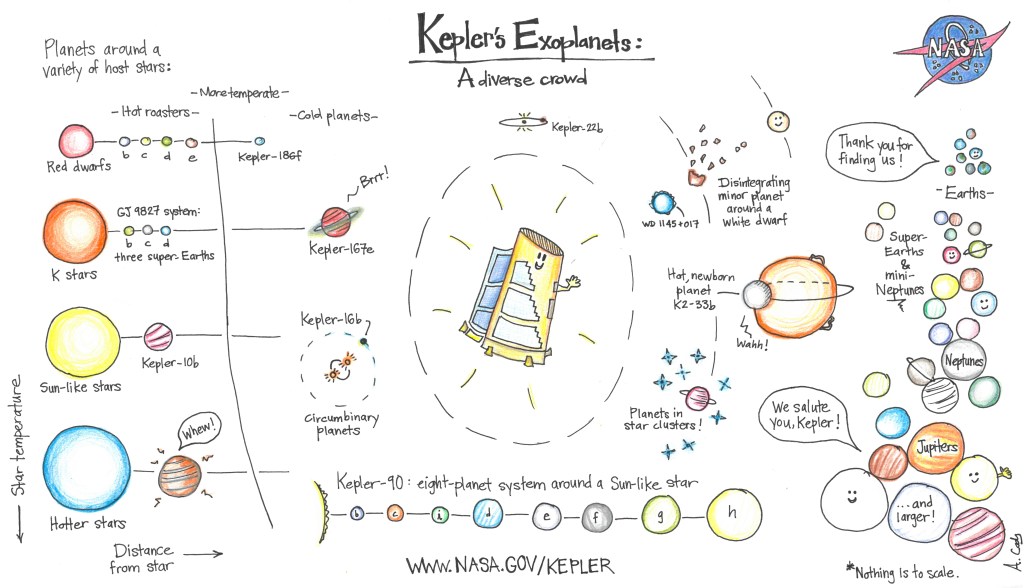 Kepler's Exoplanets:
A diverse crowd
NASA
Planets around a
variety of host stars:
-Hot roasters-
-More temperate-
-Cold planets-
b c d e
Red dwarfs
Kepler-186f
GJ 9827 system:
b c d
three super-Earths
K stars
Brrr!
Kepler-167e
Kepler-10b
Sun-like stars
Kepler-16b
Circumbinary
planets
Whew!
Hotter stars
Star temperature
Distance
from star
Kepler-22b
Disintegrating
minor planet
around a
white dwarf
WD 1145+017
Hot, newborn
planet
K2-33b
Wahh!
Planets in
star clusters!
Kepler-90: eight-planet system around a Sun-like star
b c i d e f g h
WWW.NASA.GOV/KEPLER
Thank you for
finding us!
-Earths-
Super-
Earths
&
mini-
Neptunes
Neptunes
We salute
you, Kepler!
Jupiters
...and
larger!
*Nothing is to scale.